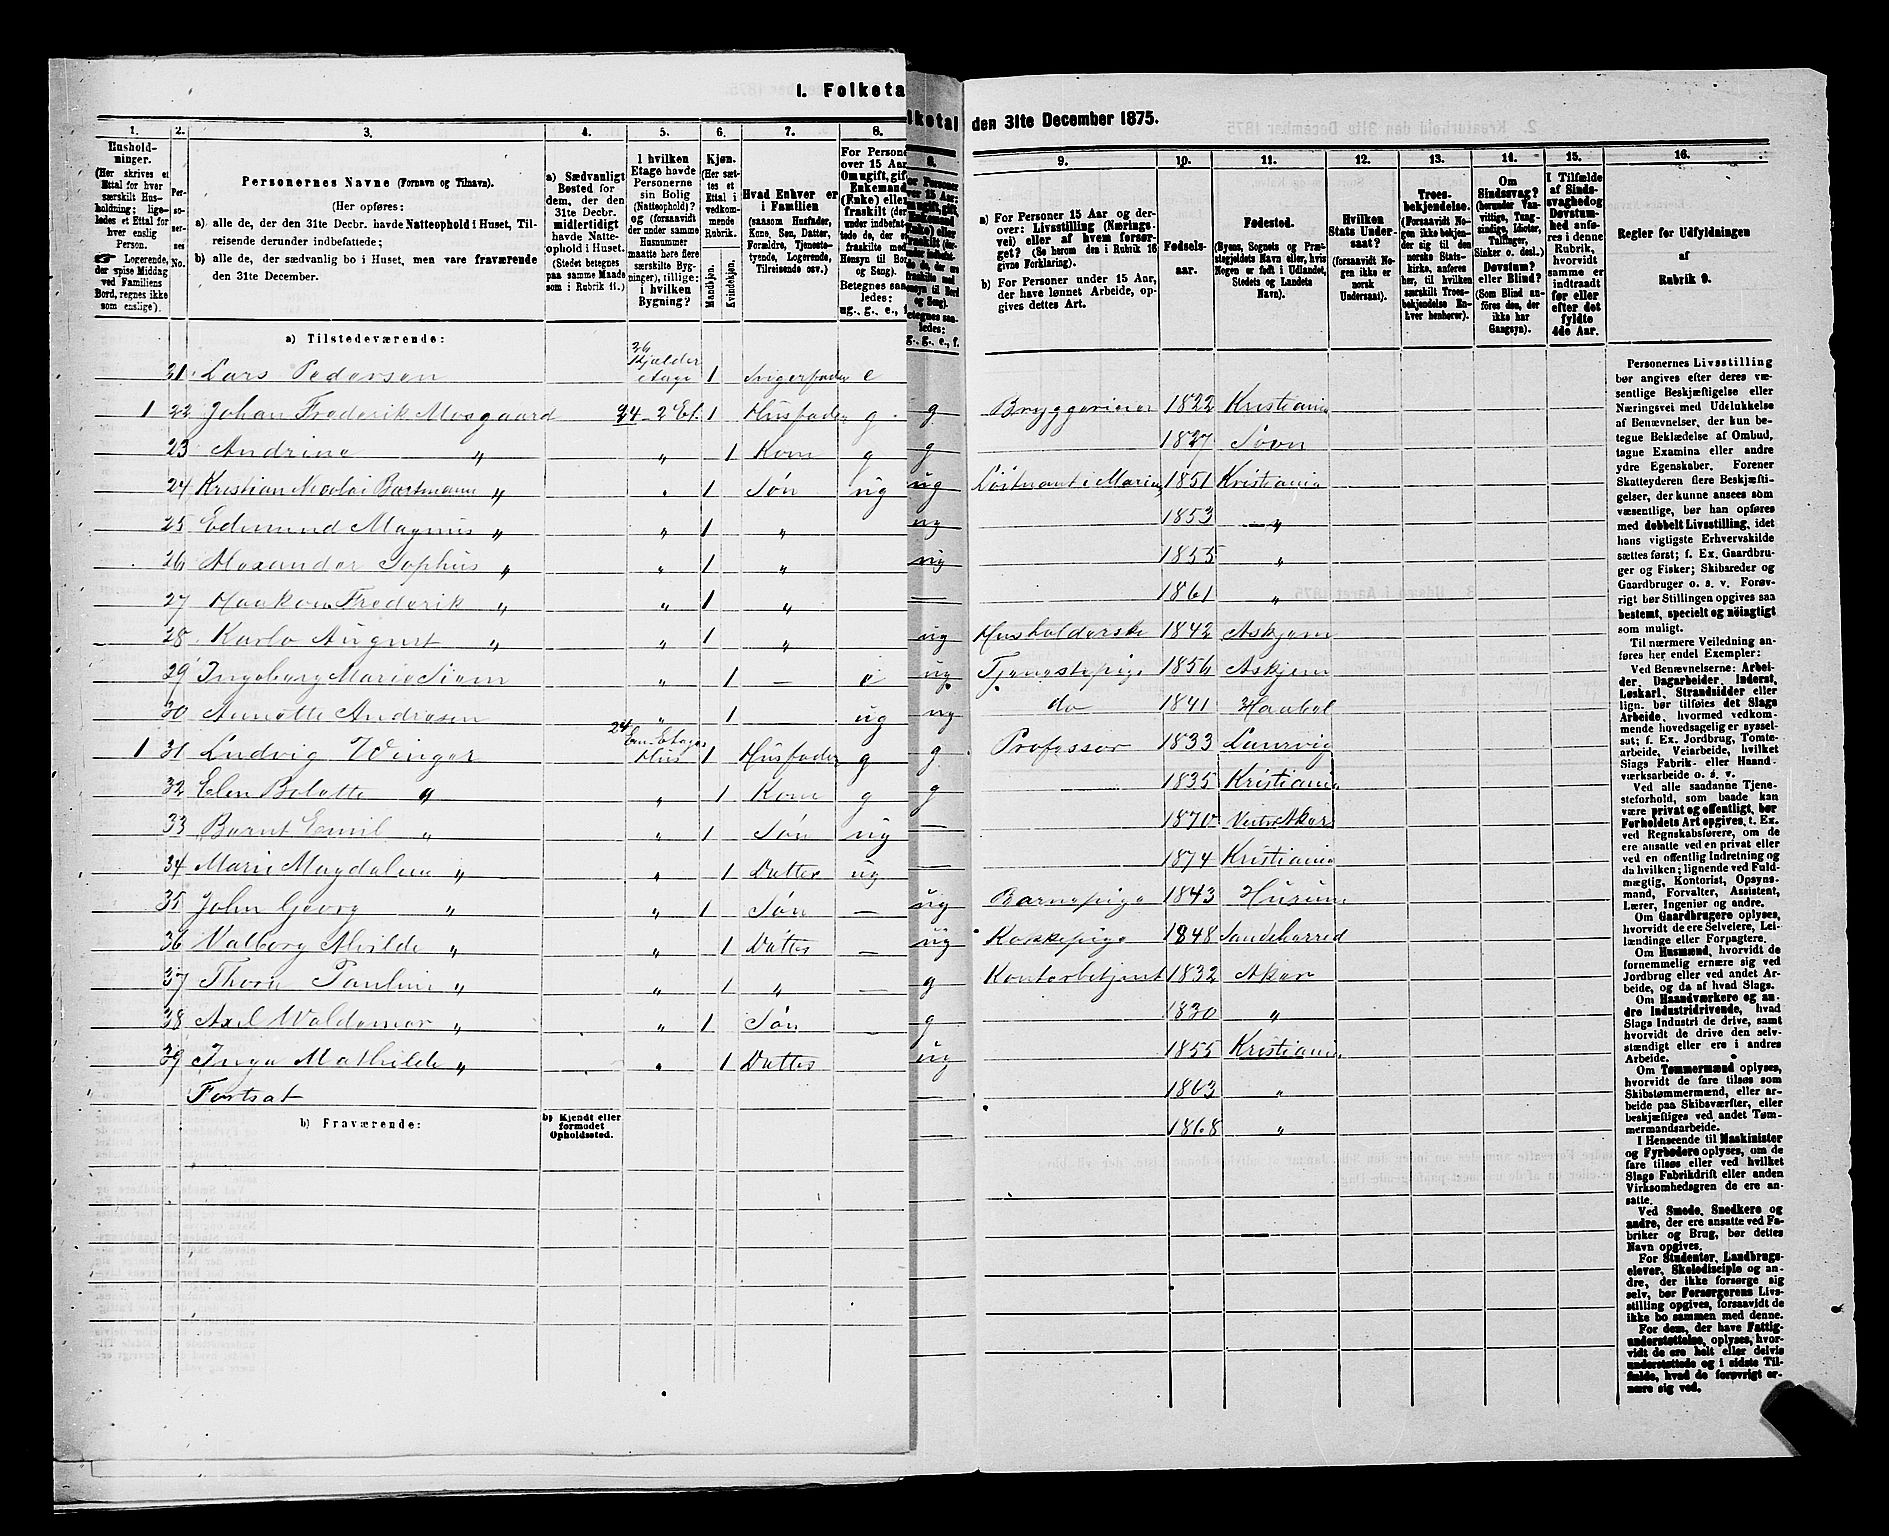 I. Folketa
1.
2.
3.
4.
5.
6.
7.
8.
Hushold-
ninger.
(Her skrives et
Ettal for hver
særskilt Hus-
holdning; lige-
ledes et Ettal for
hver enslig
Person.
Logerende,
der spise Middag
ved Familiens
Bord, regnes ikke
som enslige).
Per-
so-
ner-
nes
No.
Personernes Navne (Fornavn og Tilnavn).
(Her opføres:
a) alle de, der den 31te Decbr. havde Natteophold i Huset, Til-
reisende derunder indbefattede;
b) alle de, der sædvanlig bo i Huset, men vare fraværende
den 31te December.
a) Sædvanligt
Bosted for
dem, der den
31te Decbr.
midlertidigt
havde Natte-
ophold i Huset.
(Stedet betegnes
paa samme Maade
som i Rubrik 11.)
I hvilken
Etage havde
Personerne
sin Bolig
(Natteophold)?
og (forsaavidt
der under samme
Husnummer
maatte høre flere
særskilte Byg-
ninger), tillige:
i hvilken
Bygning?
Kjøn.
(Her sæt-
tes et
Ettal i
vedkom-
mende
Rubrik.
Mandkjøn.
Kvindekjøn.
Hvad Enhver er
i Familien
(saasom Husfader,
Kone, Søn, Datter,
Forældre, Tjeneste-
tyende, Logerende,
Tilreisende osv.)
For Persone
over 15 Aar
Om ugift, gift
Enkemand
(Enke) eller
fraskilt (der
under indbefat-
tede de, der ere
fraskilte med
Hensyn til Bor
og Seng).
Betegnes saa-
ledes:
ug., g., e., f.
a) Tilstedeværende:
21 Lars Pedersen 26 Kjælder Etage 1 Svigerfader e
1 22 Johan Frederik Mosgaard 24 - 2 Et. 1 Husfader g
23 Andrine " " 1 Kone g
24 Kristian Nicolai Bartmann " " 1 Søn ug
25 Edmund Magnus " " 1 "
26 Alexander Sophus " " 1 "
27 Haakon Frederik " " 1 "
28 Karlo August " " 1 "
29 Ingeborg Marie Siem " 1 — e
30 Annette Andresen " 1 ug
1 31 Ludvig Winger 24 Een Etages Hus 1 Husfader g
32 Elen Bolette " " 1 Kone g
33 Bernt Emil " " 1 Søn ug
34 Marie Magdalene " " 1 Datter ug
35 John Georg " " 1 Søn —
36 Valborg Alvilde " " 1 Datter —
37 Thora Pauline " " 1 " —
38 Axel Waldemar " " 1 Søn —
39 Inga Mathilde " " 1 Datter
Fortsat
b) Fraværende:
b) Kjendt eller
formodet
Opholdssted.
lketal den 31te December 1875.
8.
9.
10.
11.
12.
13.
14.
15.
16.
a) For Personer 15 Aar og der-
over: Livsstilling (Nærings-
vei) eller af hvem forsør-
get? (Se herom den i Rubrik 16
givne Forklaring).
b) For Personer under 15 Aar,
der have lønnet Arbeide, op-
gives dettes Art.
Fødsels-
aar.
Fødested.
(Byens, Sognets og Præ-
stegjeldets Navn eller, hvis
Nogen er født i Udlandet,
Stedets og Landets
Navn).
Hvilken
Stats Under-
saat?
(forsaavidt No-
gen ikke er
norsk
Undersaat).
Troes-
bekjendelse.
(Forsaavidt No-
gen ikke bekjen-
der sig til den
norske Stats-
kirke, anføres
her, til hvilken
særskilt Troes-
bekjendelse En-
hver henhører).
Om
Sindssvag?
(herunder Van-
vittige, Tung-
sindige, Idioter,
Tullinger,
Sinker o. desl.)
Døvstum?
eller Blind?
(Som Blind an-
føres den, der
ikke har
Gangsyn).
I Tilfælde
af Sinds-
svaghed og
Døvstum-
hed anfø-
res i denne
Rubrik,
hvorvidt
samme er
indtraadt
før eller
efter det
fyldte
4de Aar.
Regler for Udfyldningen
af
Rubrik 9.
g Bryggerieier 1822 Kristiania
g 1827 Sovn
ug Løitnant i Marine 1851 Kristiania
ug 1853 "
ug 1855 "
— 1861 "
ug Husholderske 1842 Askjem
ug Tjenestepige 1856 Askjem
ug do 1841 Haabøl
g Professor 1833 Laurvig
g 1835 Kristiania
— 1870 Vestre Aker
— 1874 Kristiania
ug Barnepige 1843 Hurum
ug Kokkepige 1848 Sandeherred
g Kontorbetjent 1832 Aker
g 1830 "
ug 1855 Kristiania
1863 "
1868 "
Personernes Livsstilling
bør angives efter deres væ-
sentlige Beskjæftigelse eller
Næringsvei med Udelukkelse
af Benævnelser, der kun be-
tegne Beklædelse af Ombud,
tagne Examina eller andre
ydre Egenskaber. Forener
Skatteyderen flere Beskjæfti-
gelser, der kunne ansees som
væsentlige, bør han opføres
med dobbelt Livsstilling, idet
hans vigtigste Erhvervskilde
sættes først; f. Ex. Gaardbru-
ger og Fisker; Skibsreder og
Gaardbruger o. s. v. Forøv-
rigt bør Stillingen opgives saa
bestemt, specielt og nøiagtigt
som muligt.
Til nærmere Veiledning an-
føres her endel Exempler:
Ved Benævnelserne: Arbei-
der, Dagarbeider, Inderst,
Løskarl, Strandsidder eller
lign. bør tilføies det Slags
Arbeide, hvormed vedkom-
mende hovedsagelig er syssel-
sat; f. Ex. Jordbrug, Tomte-
arbeide, Veiarbeide, hvilket
Slags Fabrik- eller Haand-
værksarbeide o. s. v.
Ved alle saadanne Tjene-
steforhold, som baade kan
være privat og offentligt, bør
Forholdets Art opgives, t. Ex.
ved Regnskabsførere, om de
ere ansatte ved en privat eller
ved en offentlig Indretning og
da hvilken; lignende ved Fuld-
mægtig, Kontorist, Opsyns-
mand, Forvalter, Assistent,
Lærer, Ingeniør og andre.
Om Gaardbrugere oplyses,
hvorvidt de ere Selveiere, Lei-
lændinge eller Forpagtere.
Om Husmænd, hvorvidt de
fornemmelig ernære sig ved
Jordbrug eller ved andet Ar-
beide, og da af hvad Slags.
Om Haandværkere og an-
dre Industridrivende, hvad
Slags Industri de drive, samt
hvorvidt de drive den selv-
stændigt eller ere i andres
Arbeide.
Om Tømmermænd oplyses,
hvorvidt de fare tilsøs som
Skibstømmermænd, eller ar-
beide paa Skibsværfter, eller
beskjæftiges ved andet Tøm-
mermandsarbeide.
I Henseende til Maskinister
og Fyrbødere oplyses, om de
fare tilsøs eller ved hvilket
Slags Fabrikdrift eller anden
Virksomhedsgren de ere an-
satte.
Ved Smede, Snedkere og
andre, der ere ansatte ved Fa-
briker og Brug, bør dettes
Navn opgives.
For Studenter, Landbrugs-
elever, Skoledisciple og an-
dre, der ikke forsørge sig
selv, bør Forsørgerens Livs-
stilling opgives, forsaavidt de
ikke bo sammen med denne.
For dem, der have Fattig-
understøttelse, oplyses, hvor-
vidt de ere helt eller delvis
understøttede og i sidste Til-
fælde, hvad de forøvrigt er-
nære sig ved.